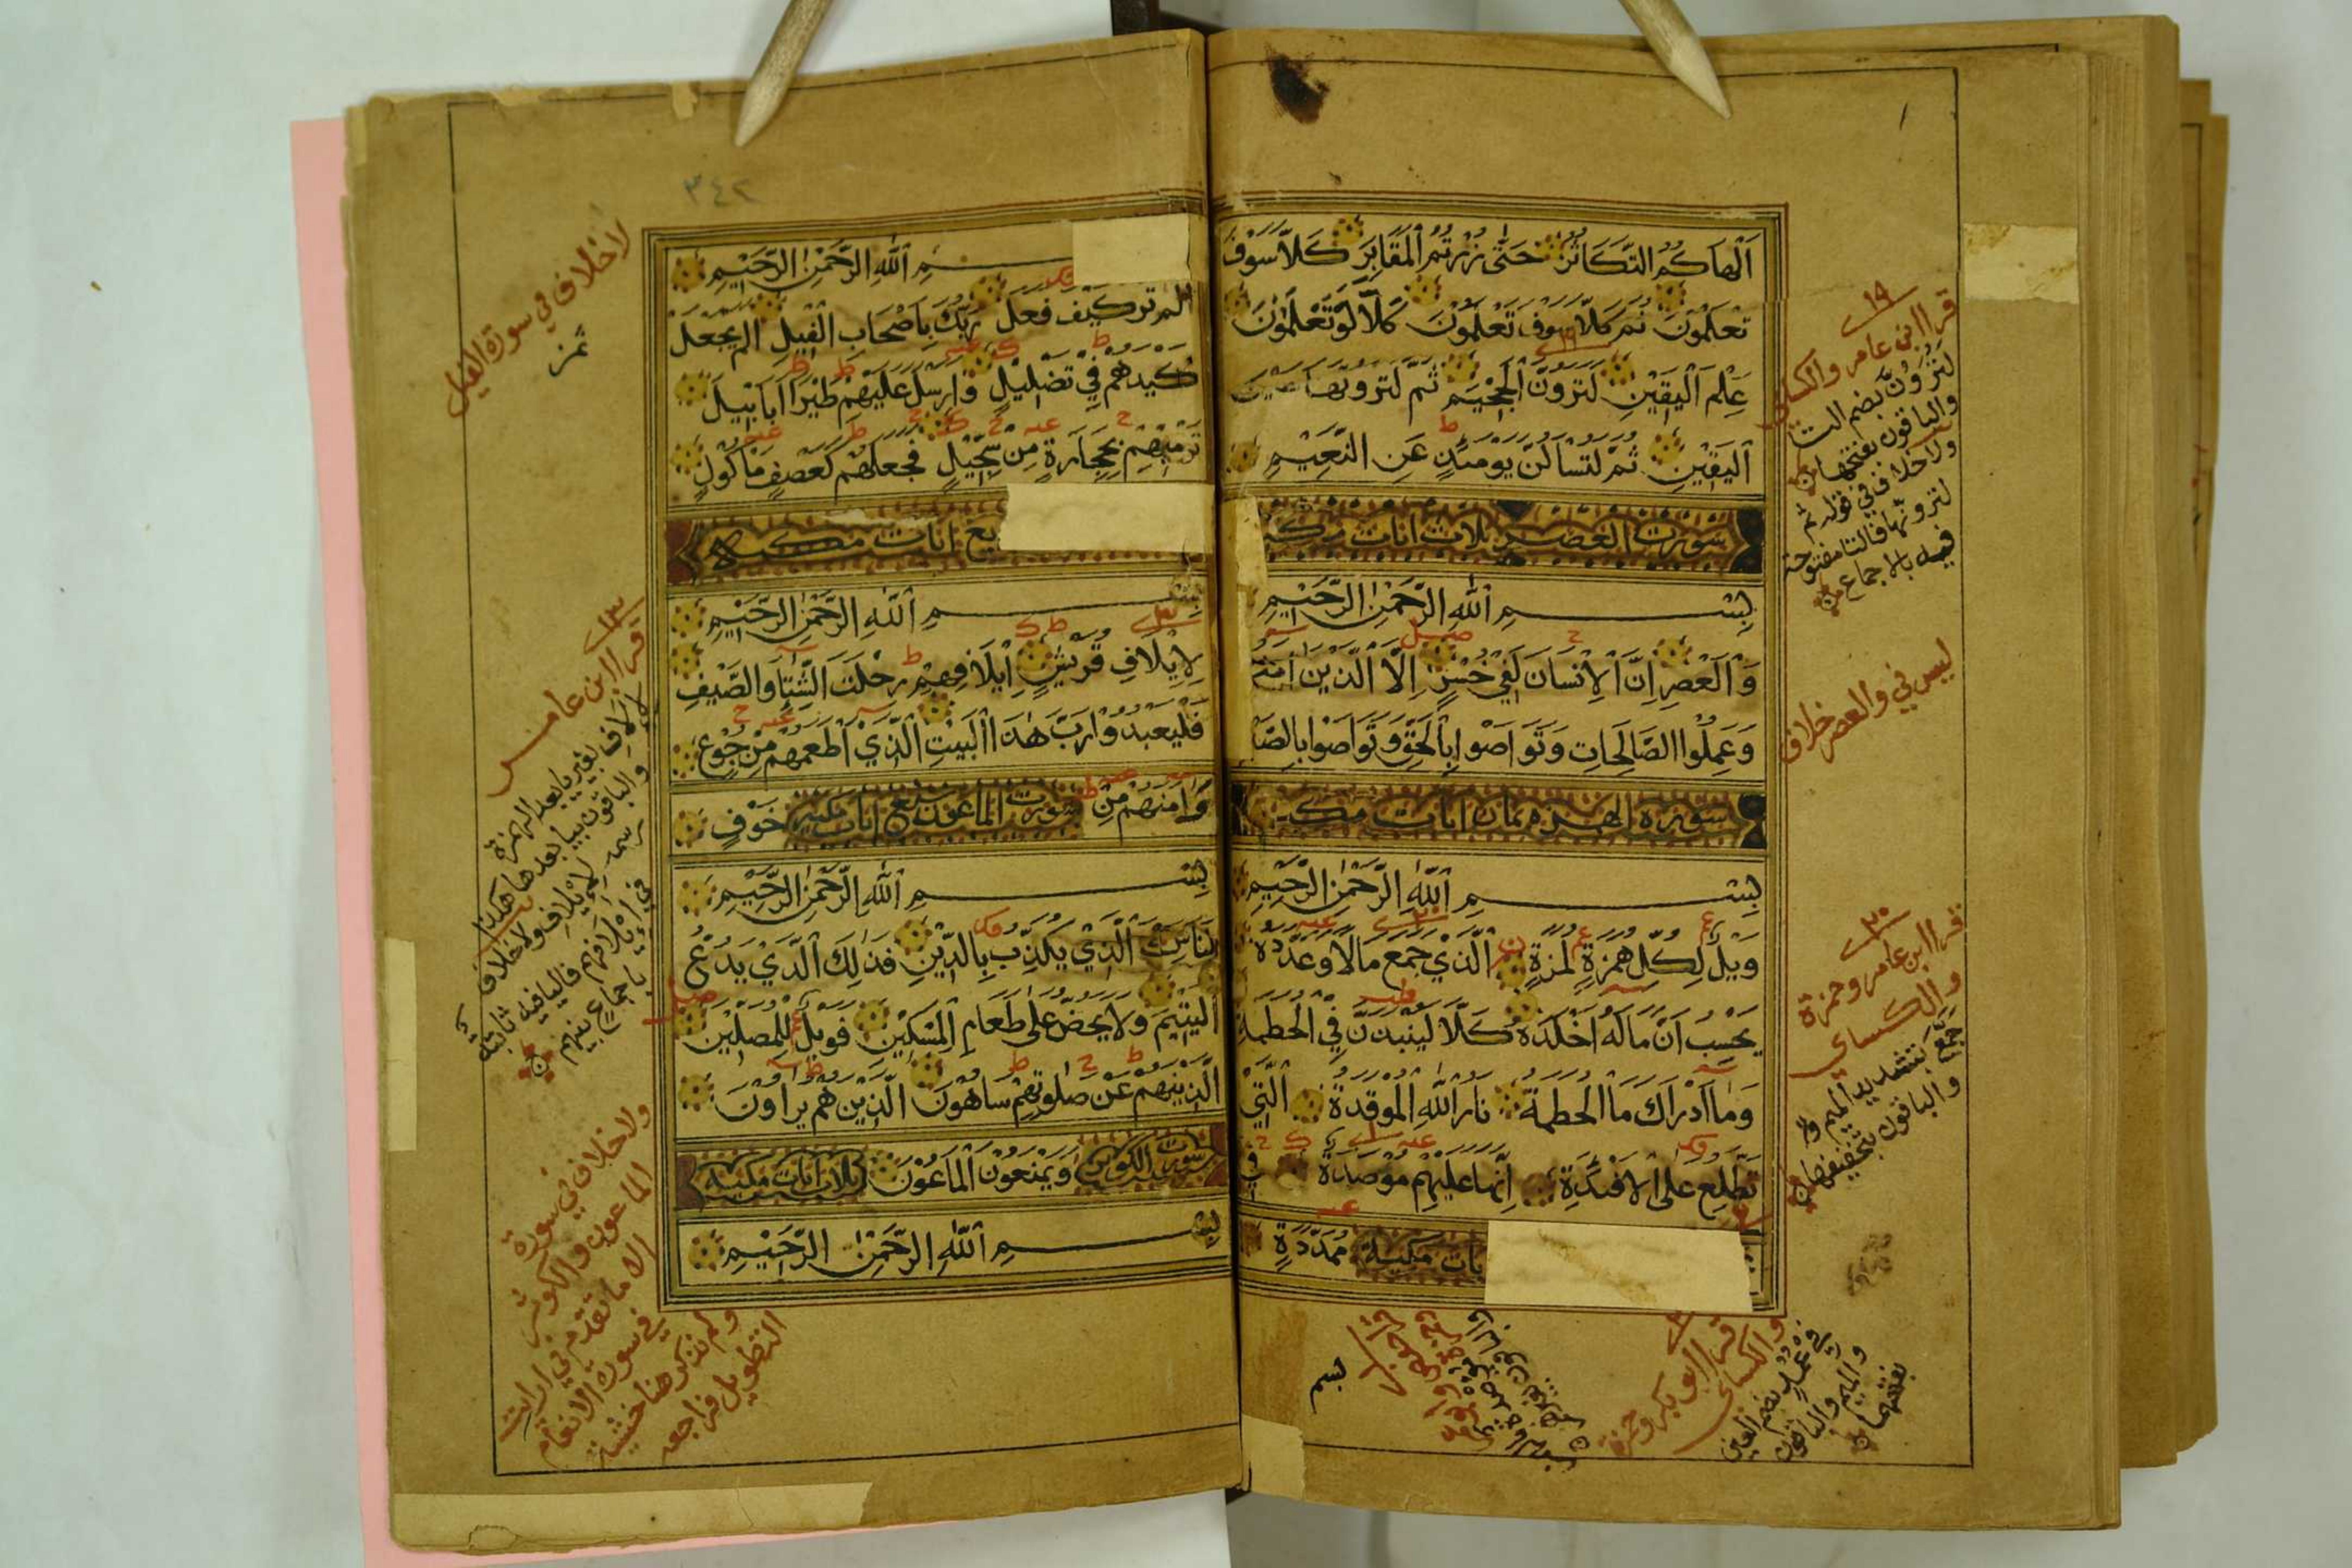 اَلْهَاكُمُ التَّكَاثُرُ حَتَّى زُرْتُمُ الْمَقَابِرَ كَلَّا سَوْفَ
تَعْلَمُوْنَ ثُمَّ كَلَّا سَوْفَ تَعْلَمُوْنَ كَلَّا لَوْ تَعْلَمُوْنَ
عِلْمَ الْيَقِيْنِ لَتَرَوُنَّ الْجَحِيْمَ ثُمَّ لَتَرَوُنَّهَا عَيْنَ
الْيَقِيْنِ ثُمَّ لَتُسْأَلُنَّ يَوْمَئِذٍ عَنِ النَّعِيْمِ
سورت العصر ثلاث ايات مكية
بِسْمِ اللّٰهِ الرَّحْمٰنِ الرَّحِيْمِ
وَالْعَصْرِ اِنَّ الْاِنْسَانَ لَفِيْ خُسْرٍ اِلَّا الَّذِيْنَ اٰمَنُوا
وَعَمِلُوا الصَّالِحَاتِ وَتَوَاصَوْا بِالْحَقِّ وَتَوَاصَوْا بِالصَّبْرِ
سورة الهمزة ثمان ايات مكية
بِسْمِ اللّٰهِ الرَّحْمٰنِ الرَّحِيْمِ
وَيْلٌ لِكُلِّ هُمَزَةٍ لُمَزَةٍ الَّذِيْ جَمَعَ مَالًا وَعَدَّدَهُ
يَحْسِبُ اَنَّ مَالَهُ اَخْلَدَهُ كَلَّا لَيُنْبَذَنَّ فِي الْحُطَمَةِ
وَمَا اَدْرَاكَ مَا الْحُطَمَةُ نَارُ اللّٰهِ الْمُوْقَدَةُ الَّتِيْ
تَطَّلِعُ عَلَى الْاَفْئِدَةِ اِنَّهَا عَلَيْهِمْ مُؤْصَدَةٌ فِي
يات مكية مُمَدَّدَةٍ
١٩
قرا ابن عامر والكسائي
لتُرَوُنَّ بضم التا
والباقون بفتحها
ولا خلاف في قوله ثم
لترونها فالتا مفتوحة
فيه بالاجماع
ليس في والعصر خلاف
٢٠
قرا ابن عامر وحمزة
والكسائي
جَمَّعَ بتشديد الميم
والباقون بتخفيفها
قرا ابو بكر وحمزة
والكسائي
في عُمُدٍ بضم العين
والميم والباقون
بفتحهما
بسم
٣٤٢
بِسْمِ اللّٰهِ الرَّحْمٰنِ الرَّحِيْمِ
اَلَمْ تَرَ كَيْفَ فَعَلَ رَبُّكَ بِاَصْحَابِ الْفِيْلِ اَلَمْ يَجْعَلْ
كَيْدَهُمْ فِيْ تَضْلِيْلٍ وَاَرْسَلَ عَلَيْهِمْ طَيْرًا اَبَابِيْلَ
تَرْمِيْهِمْ بِحِجَارَةٍ مِنْ سِجِّيْلٍ فَجَعَلَهُمْ كَعَصْفٍ مَاْكُوْلٍ
بع ايات مكية
بِسْمِ اللّٰهِ الرَّحْمٰنِ الرَّحِيْمِ
لِاِيْلَافِ قُرَيْشٍ اِيْلَافِهِمْ رِحْلَتَ الشِّتَاءِ وَالصَّيْفِ
فَلْيَعْبُدُوْا رَبَّ هٰذَا الْبَيْتِ الَّذِيْ اَطْعَمَهُمْ مِنْ جُوْعٍ
وَاٰمَنَهُمْ مِنْ سورت الماعون سبع ايات مكية خَوْفٍ
بِسْمِ اللّٰهِ الرَّحْمٰنِ الرَّحِيْمِ
اَرَاَيْتَ الَّذِيْ يُكَذِّبُ بِالدِّيْنِ فَذٰلِكَ الَّذِيْ يَدُعُّ
الْيَتِيْمَ وَلَا يَحُضُّ عَلَى طَعَامِ الْمِسْكِيْنِ فَوَيْلٌ لِلْمُصَلِّيْنَ
الَّذِيْنَ هُمْ عَنْ صَلٰوتِهِمْ سَاهُوْنَ الَّذِيْنَ هُمْ يُرَاؤُنَ
سورت الكوثر وَيَمْنَعُوْنَ الْمَاعُوْنَ ثلاث ايات مكية
بِسْمِ اللّٰهِ الرَّحْمٰنِ الرَّحِيْمِ
لا خلاف في سورة الفيل
قرا ابن عامر
لالاف بغير يا بعد الهمزة
والباقون بيا بعدها هكذا
رسمه لايلاف ولا خلاف
في ايلافهم فاليا فيه ثابتة
باجماع بينهم
ولا خلاف في سورة
الماعون والكوثر
الا ما تقدم في ارايت
في سورة الانعام
ولم نذكر هنا خشية
التطويل فراجعه